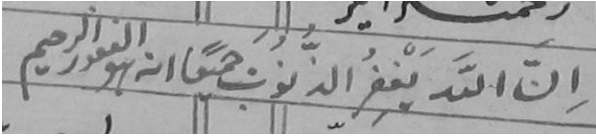 اِنَّ اللهَ يَغْفِرُ الذُّنُوْبَ جَمِيْعًا انه هو الغفور الرحيم